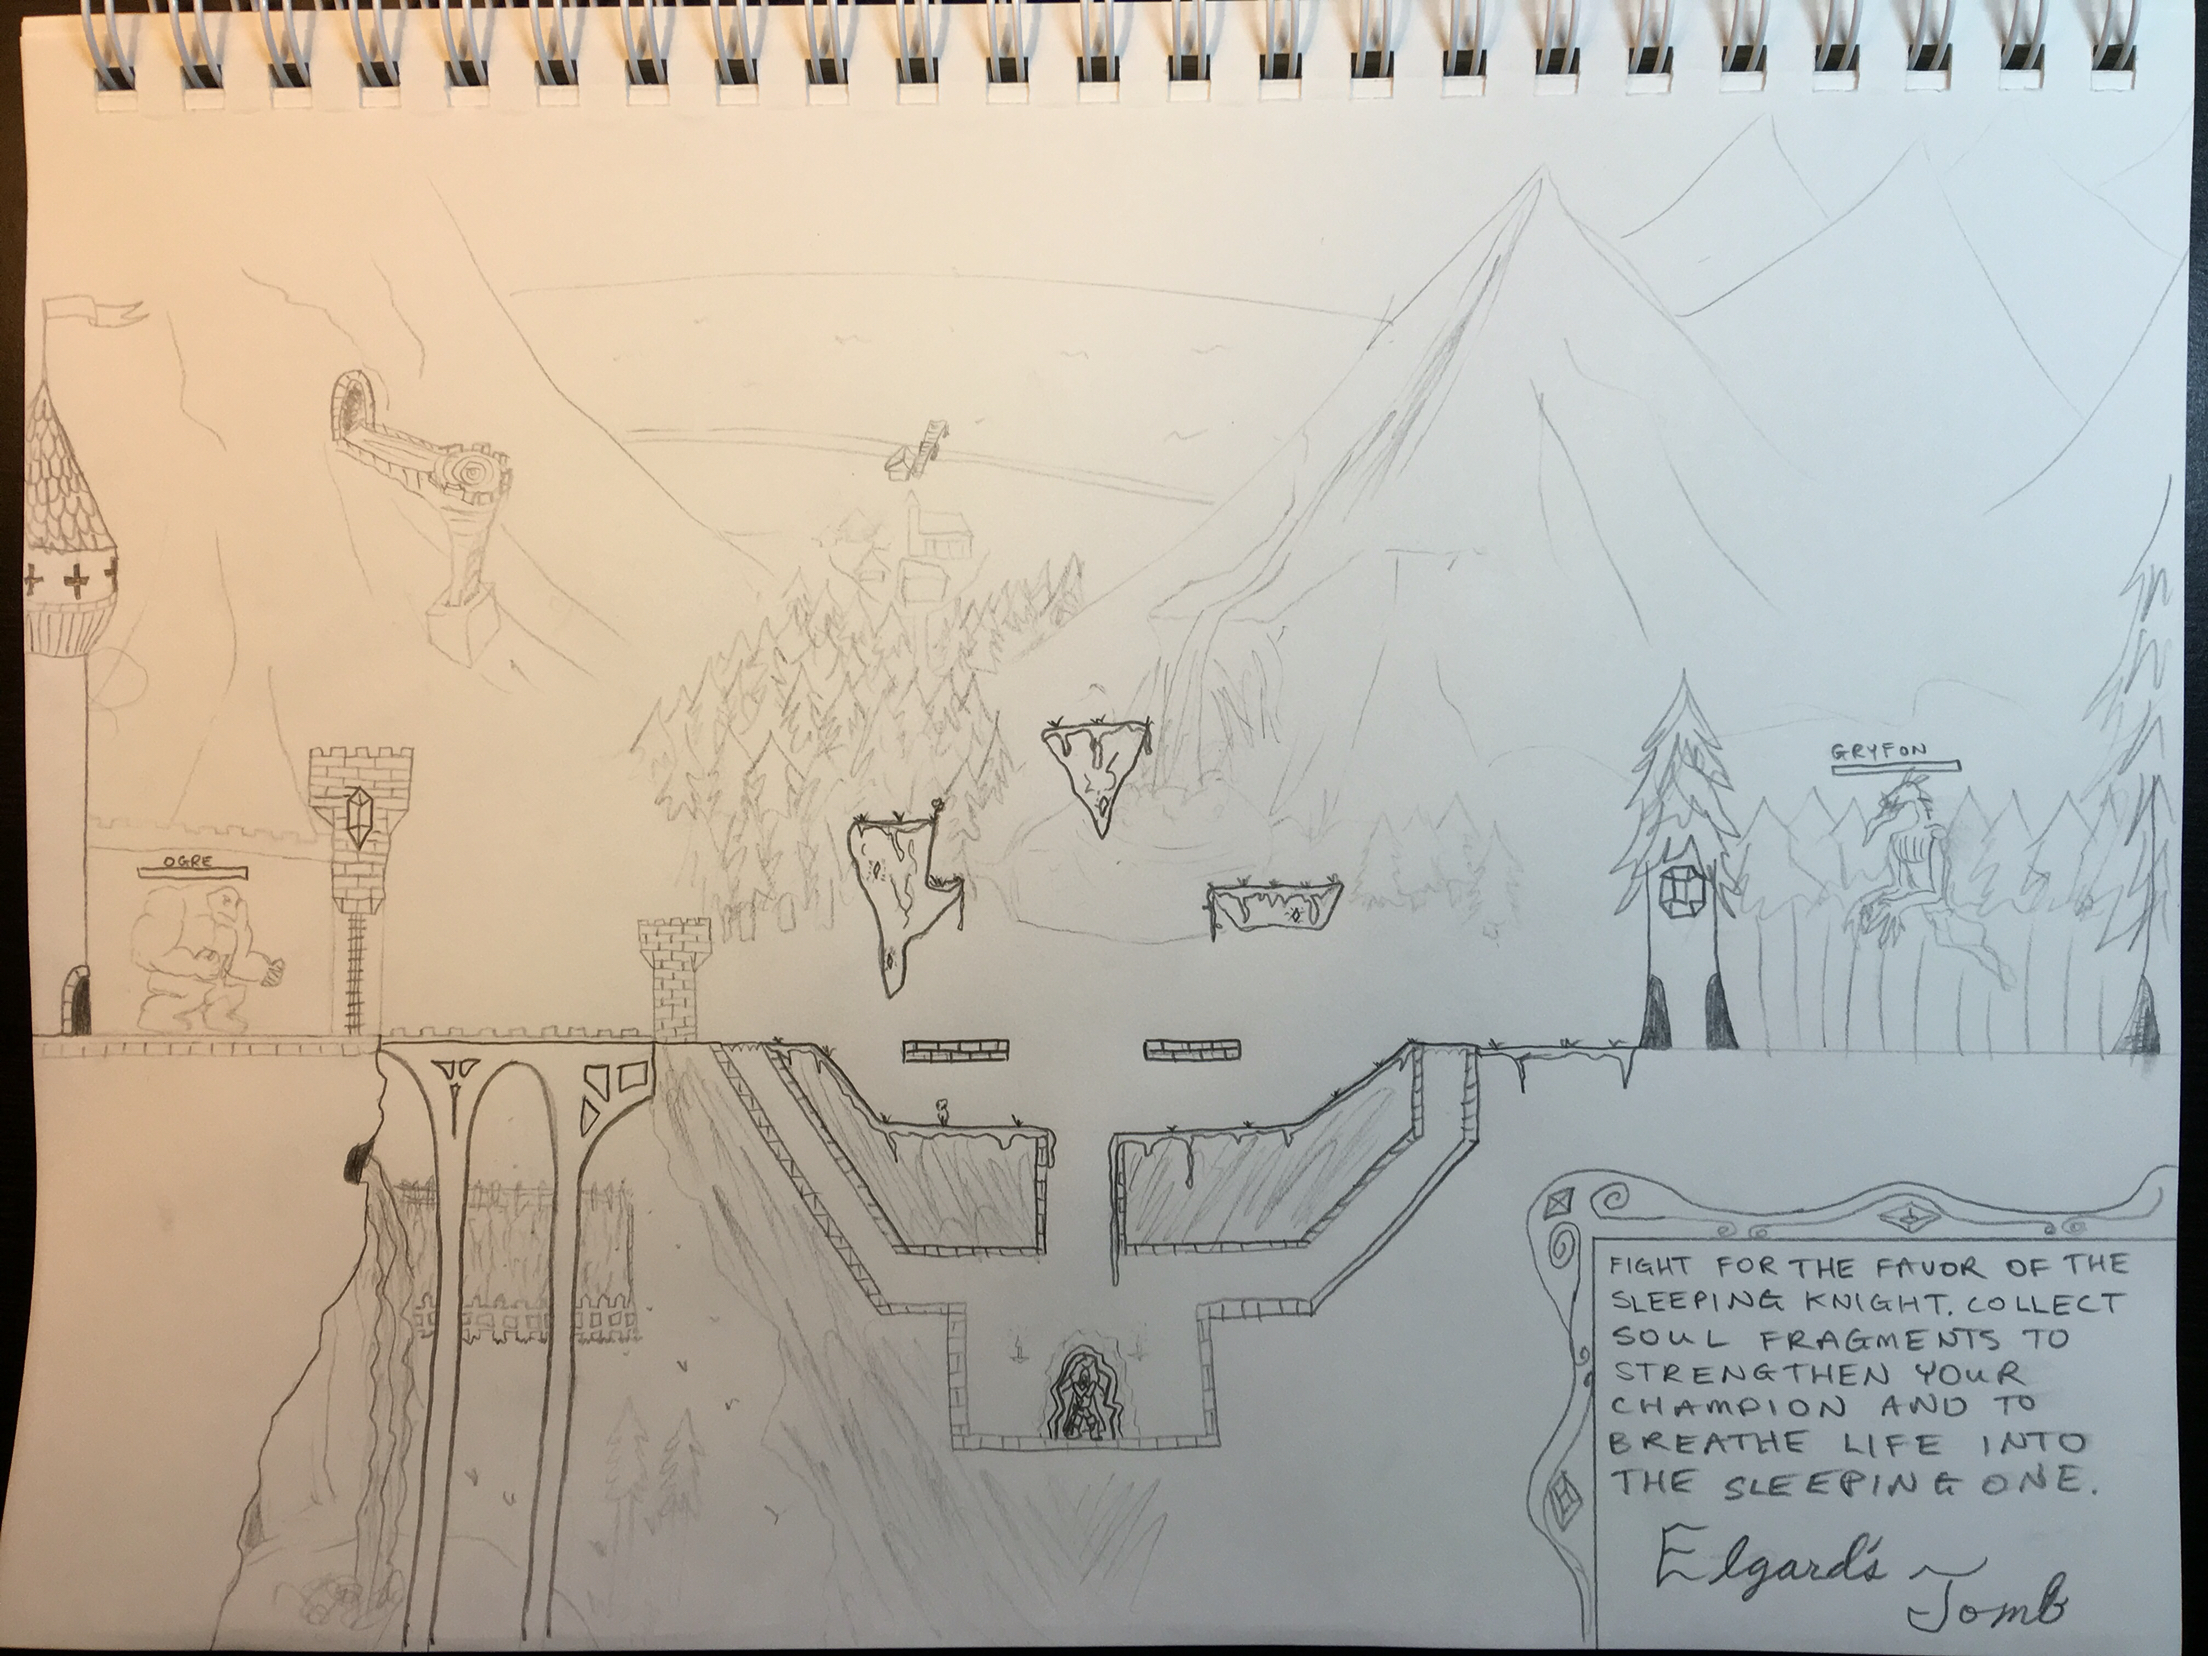 GRYFON
OGRE
FIGHT FOR THE FAVOR OF THE
SLEEPING KNIGHT. COLLECT
SOUL FRAGMENTS TO
STRENGTHEN YOUR
CHAMPION AND TO
BREATHE LIFE INTO
THE SLEEPING ONE.
Elgard's
Tomb